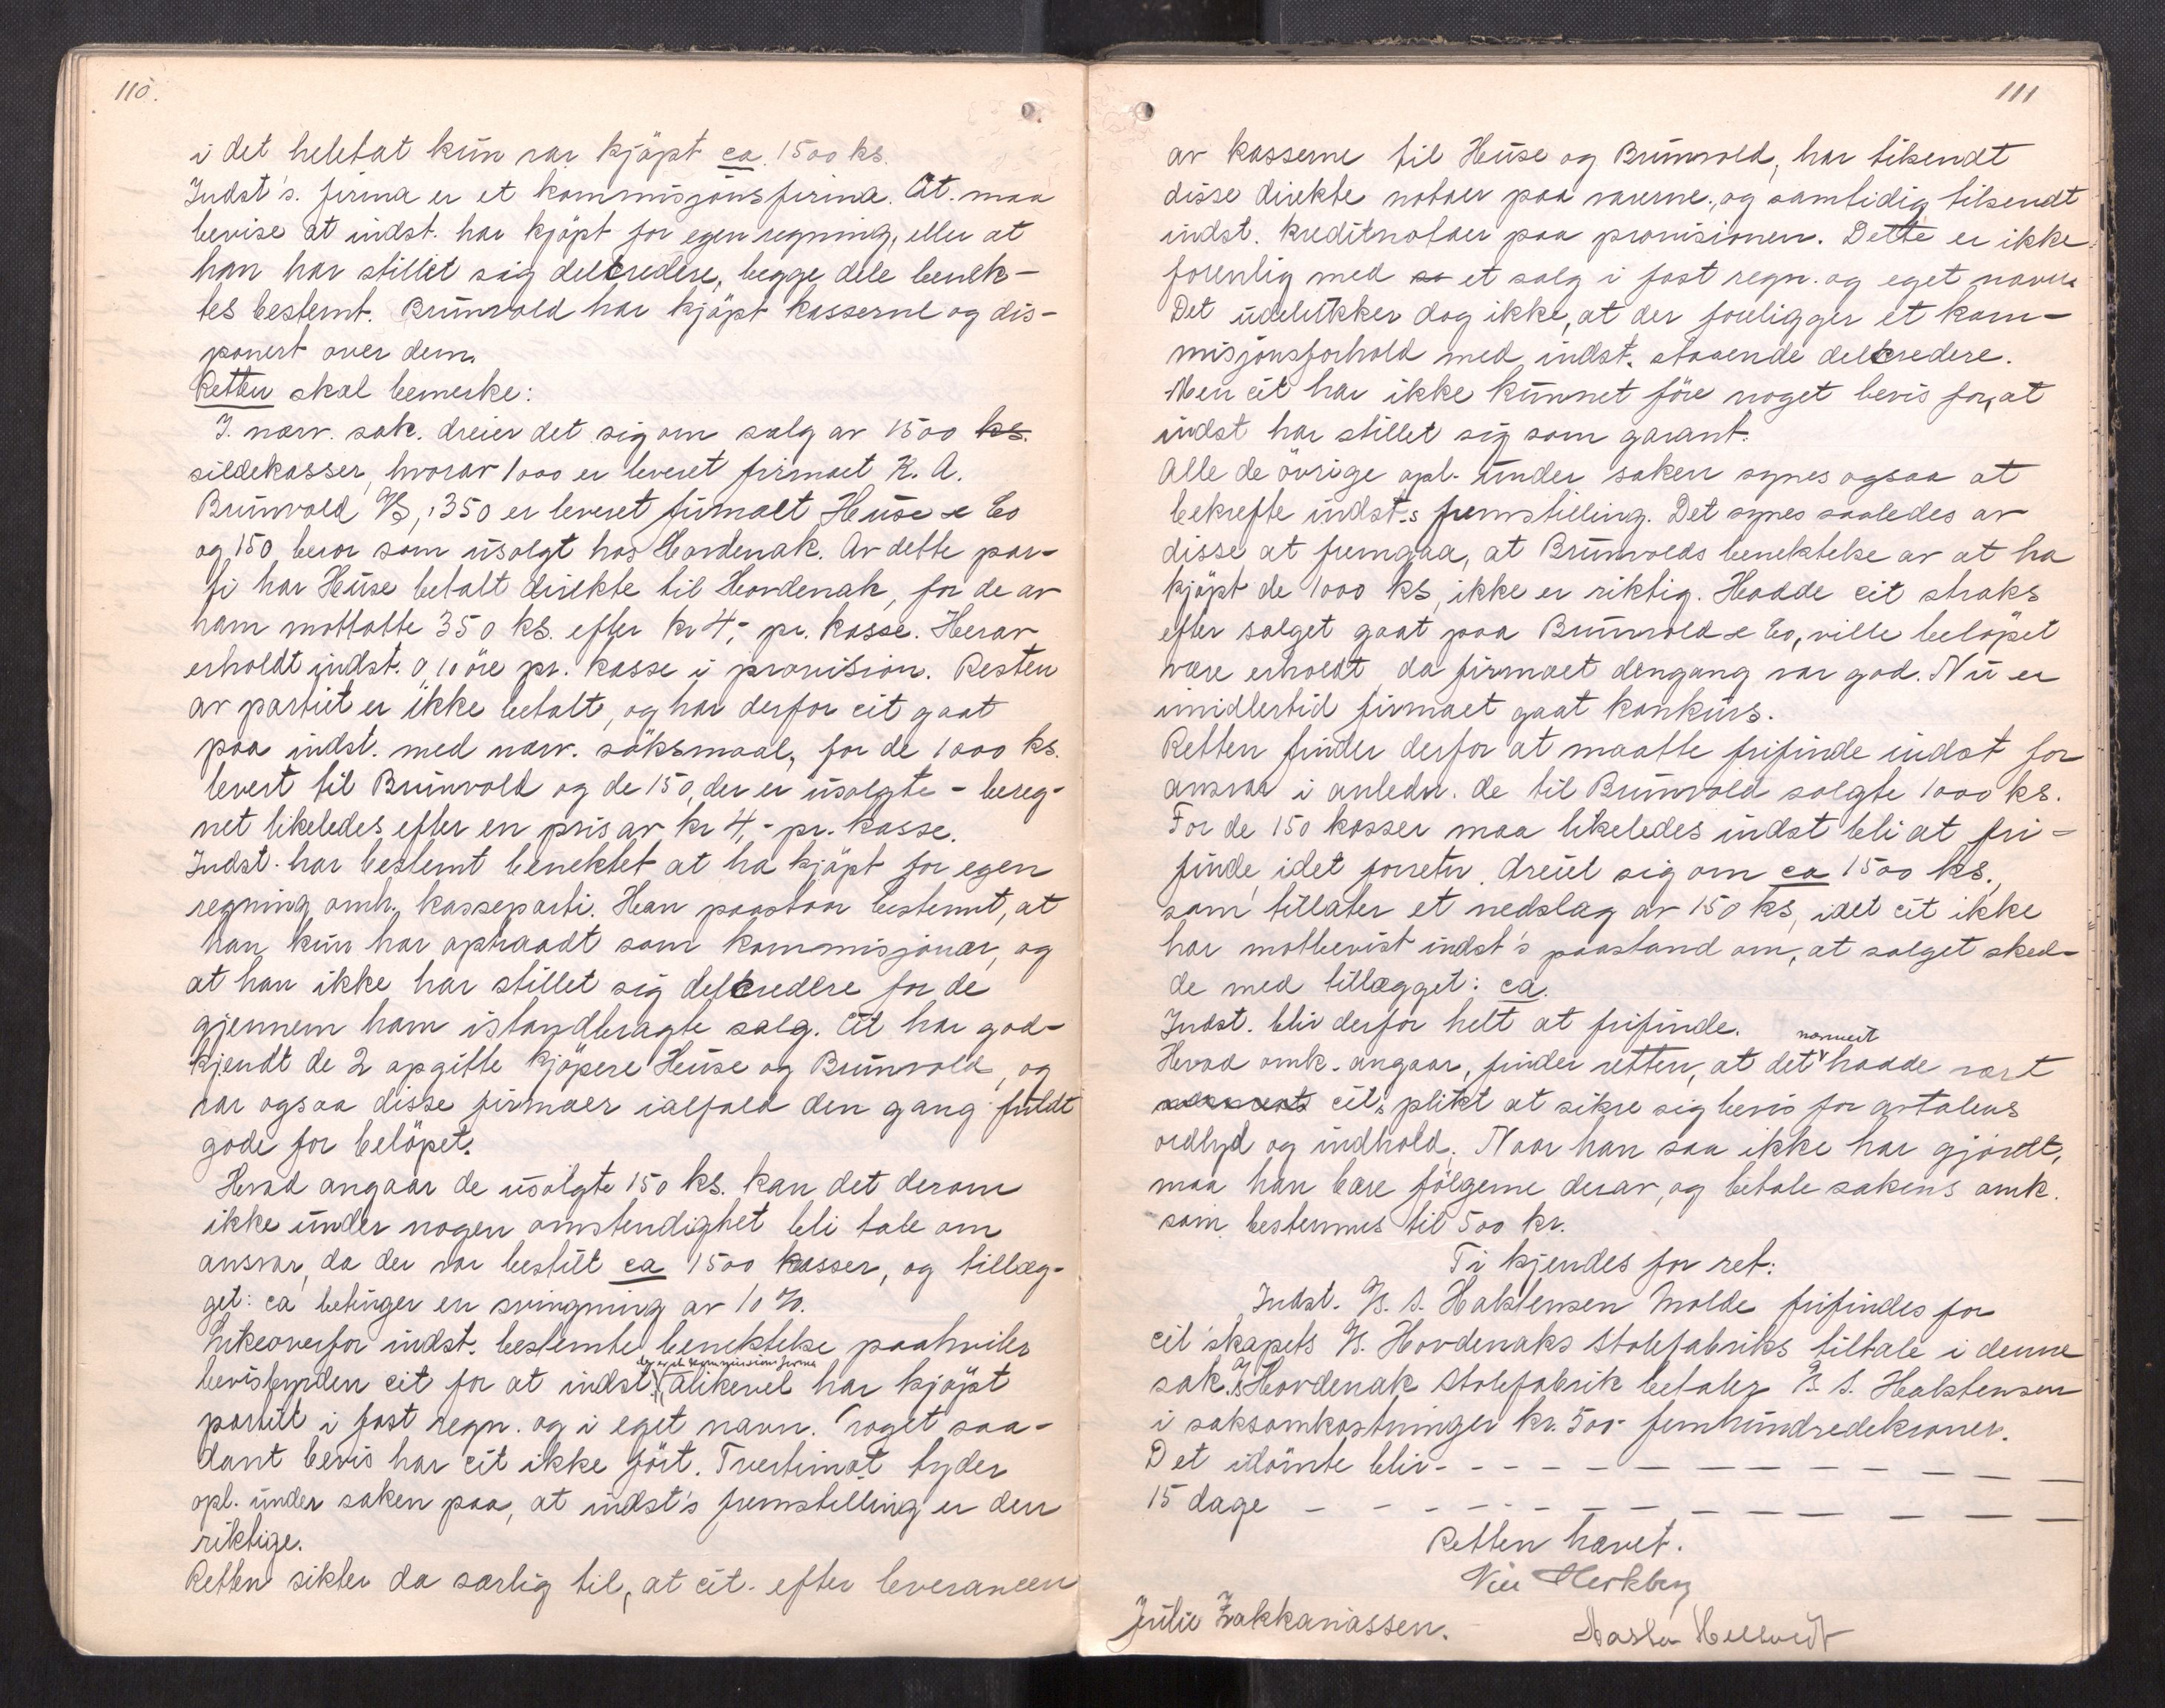 110.
i det heletat kun var kjöpt ca. 1500 ks.
Indst's. firma er et kommisjonsfirma. Cit. maa
bevise at indst. har kjöpt for egen regning, eller at
han har stillet sig delcredere, begge dele benek-
tes bestemt. Brunvold har kjöpt kasserne og dis-
ponert over dem.
Retten skal bemerke:
I. nærv. sak. dreier det sig om salg av 1500 ks.
sildekasser, hvorav 1000 er leveret firmaet K. A.
Brunvold A/S, 350 er leveret firmaet Huse & Co
og 150 beror som usolgt hos Hordenak. Av dette par-
ti har Huse betalt direkte til Hordenak, for de av
ham mottatte 350 ks. efter kr 4,- pr. kasse. Herav
erholdt indst. 0,10 öre pr. kasse i provision. Resten
av partiet er ikke betalt, og har derfor cit gaat
paa indst. med nærv. söksmaal, for de 1000 ks.
levert til Brunvold og de 150, der er usolgte - bereg-
net likeledes efter en pris av kr 4,- pr. kasse.
Indst. har bestemt benektet at ha kjöpt for egen
regning omh. kasseparti. Han paastaar bestemt, at
han kun har optraadt som kommisjonær, og
at han ikke har stillet sig delcredere for de
gjennem ham istandbragte salg. Cit har god-
kjendt de 2 opgitte kjöpere Huse og Brunvold, og
var ogsaa disse firmaer ialfald den gang fuldt
gode for belöpet.
Hvad angaar de usolgte 150 ks. kan det derom
ikke under nogen omstendighet bli tale om
ansvar, da der var bestilt ca 1500 kasser, og tillæg-
get: ca betinger en svingning av 10 %.
Likeoverfor indst. bestemte benektelse paahviler
der er et kommissions firma
bevisbyrden cit for at indst. alikevel har kjöpt
partiet i fast regn. og i eget navn. Noget saa-
dant bevis har cit ikke fört. Tvertimot tyder
opl. under saken paa, at indst's fremstilling er den
riktige.
Retten sikter da særlig til, at cit. efter leverancen
111
av kasserne til Huse og Brunvold, har tilsendt
disse direkte notaer paa varerne, og samtidig tilsendt
indst. kreditnotaer paa provisionen. Dette er ikke
forenlig med et salg i fast regn. og eget navn.
Det udelukker dog ikke, at der foreligger et kom-
misjonsforhold med indst. staaende delcredere.
Men cit har ikke kunnet före noget bevis for, at
indst har stillet sig som garant.
Alle de övrige opl. under saken synes ogsaa at
bekrefte indst.s fremstilling. Det synes saaledes av
disse at fremgaa, at Brunvolds benektelse av at ha
kjöpt de 1000 ks, ikke er riktig. Hadde cit straks
efter salget gaat paa Brunvold & Co, ville belöpet
være erholdt da firmaet dengang var god. Nu er
imidlertid firmaet gaat konkurs.
Retten finder derfor at maatte frifinde indst for
ansvar i anledn. de til Brunvold solgte 1000 ks.
For de 150 kasser maa likeledes indst bli at fri-
finde, idet forretn. dreiet sig om ca 1500 ks.,
som tillater et nedslag av 150 ks, idet cit ikke
har motbevist indst's paastand om, at salget sked-
de med tillægget: ca.
Indst. blir derfor helt at frifinde.
nærmest
Hvad omk. angaar, finder retten, at det hadde vært
cit.s plikt at sikre sig bevis for avtalens
ordlyd og indhold. Naar han saa ikke har gjordt,
maa han bære fölgerne derav, og betale sakens omk.
som bestemmes til 500 kr.
Ti kjendes for ret:
Indst. A/S. S. Halstensen Molde frifindes for
cit'skapets A/S. Hordenaks Stolefabriks tiltale i denne
sak. A/S Hordenak Stolefabrik betaler A/S. S. Halstensen
i saksomkostninger kr. 500 femhundredekroner.
Det idömte blir - - - - - - - - - - - - -
15 dage - - - - - - - - - - - - -
Retten hævet.
Julie Zakkariassen.